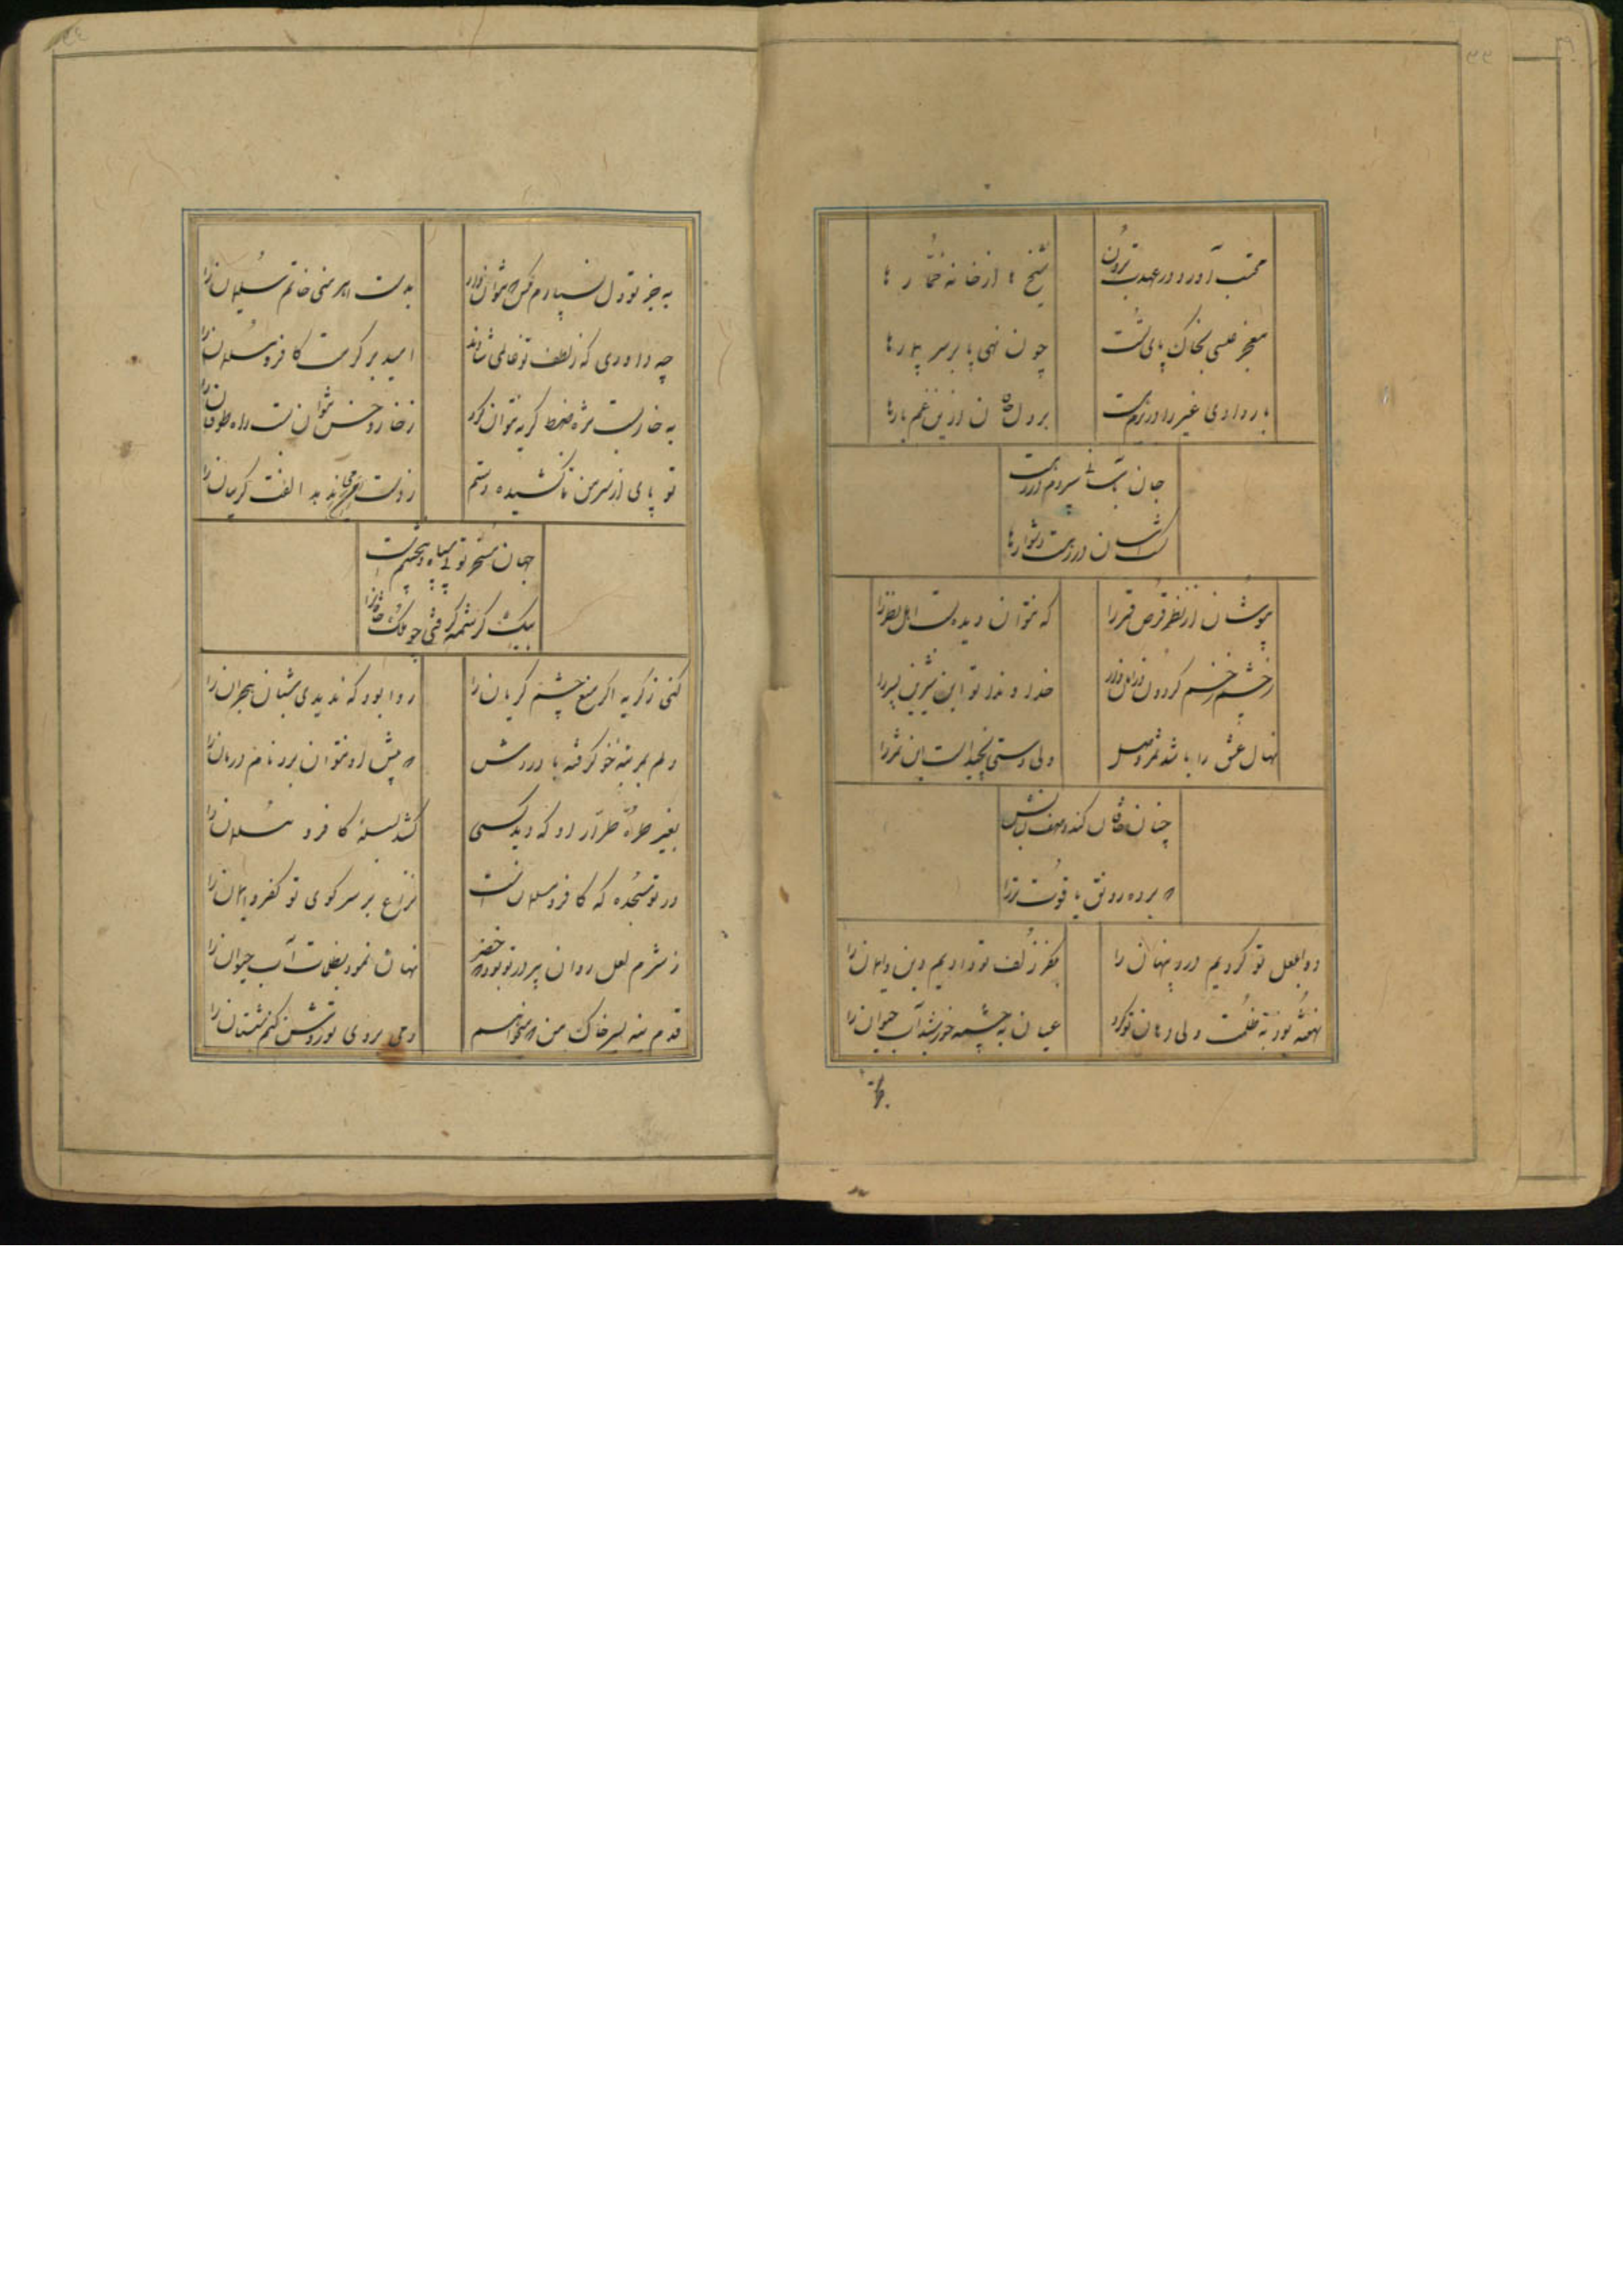 محتسب آورد در عهدت برون
شیخ ها از خانه خمّار ها
معجز عیسی بخاک پای تست
چون نهی پا بر سر بیمارها
بار دادی غیر را در بزم
بر دل خاقان ازین غم بارها
جان سپردم در رهت
آسان در رهت دشوارها
مپوشان از نظر قرص قمر را
که نتوان دیده بست اهل نظر را
ز چشم زخم گردون
خداوندا تو این شیرین پسر را
نهال عشق را باشد ثمر وصل
ولی دستی نچیدست این ثمر را
چنان خاقان کند وصف لبانش
که برده رونق یاقوت تر را
دوا بلعل تو کردیم درد پنهان را
بکفر زلف تو دادیم دین و ایمان را
نهفته بود به ظلمت ولی دهان تو کرد
عیان به چشمه خورشید آب حیوان را
بجز تو دل نسپارم بکس که نتوان داد
بدست اهرمنی خاتم سلیمان را
چه داوری که ز لطف تو عالمی شادند
امید بر کرمت کافر و مسلمان را
به خار بست مژه ضبط گریه نتوان کرد
ز خار و خس نتوان بست راه طوفان را
تو پای از سر من تا کشیده دستم
ز دست می ندهد الفت گریبان را
جهان مسخر تو بی سپاه و حشمت
بیک کرشمه گرفتی چو ملک خاقان را
کنی ز گریه اگر منع چشم گریان را
روا بود که ندیدی شبان هجران را
دلم بمرتبه خو گرفته با دردش
که پیش او نتوان برد نام درمان را
بغیر طرّه طرّار او که دید کسی
کشد بسلسله کافر و مسلمان را
در تو سجده که کافر و مسلمان است
نزاع بر سر کوی تو کفر و ایمان را
ز شرم لعل روان پرور تو بود که خضر
نهان نمود بظلمات آب حیوان را
قدم منه بسر خاک من که میخواهم
دمی بروی تو روشن کنم شبستان را